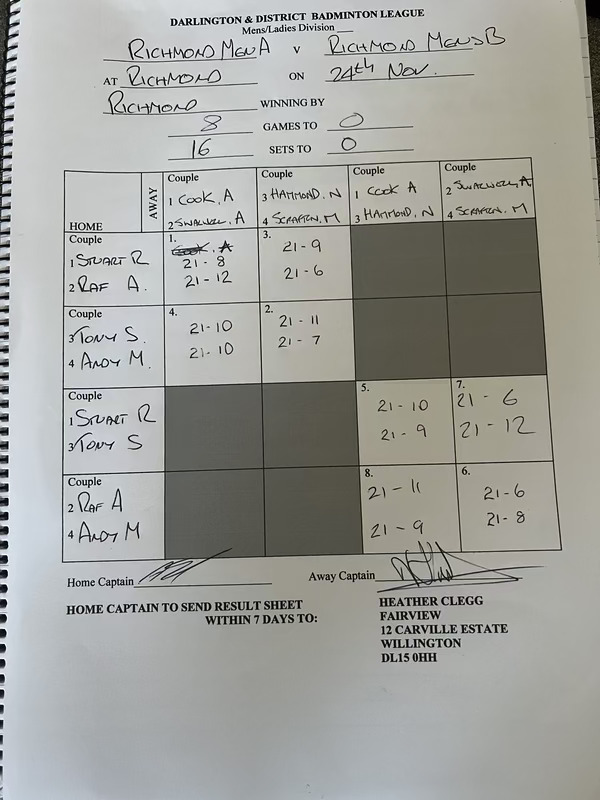 DARLINGTON & DISTRICT BADMINTON LEAGUE
Mens/Ladies Division __
RICHMOND MEN A v RICHMOND MENS B
AT RICHMOND ON 24th Nov.
RICHMOND WINNING BY
8 GAMES TO 0
16 SETS TO 0
HOME AWAY
Couple
1 COOK, A
2 SWALWELL, A
3 HAMMOND, N
4 SCRAFTON, M
Couple
1 COOK A
3 HAMMOND, N
Couple
2 SWALWELL, A
4 SCRAFTON, M
Couple
1 STUART R
2 RAF A.
1.
COOK, A
21-8
21-12
3.
21-9
21-6
Couple
3 TONY S.
4 ANDY M.
4.
21-10
21-10
2.
21-11
21-7
Couple
1 STUART R
3 TONY S
5.
21-10
21-9
7.
21-6
21-12
Couple
2 RAF A
4 ANDY M
8.
21-11
21-9
6.
21-6
21-8
Home Captain
Away Captain
HOME CAPTAIN TO SEND RESULT SHEET
WITHIN 7 DAYS TO:
HEATHER CLEGG
FAIRVIEW
12 CARVILLE ESTATE
WILLINGTON
DL15 0HH